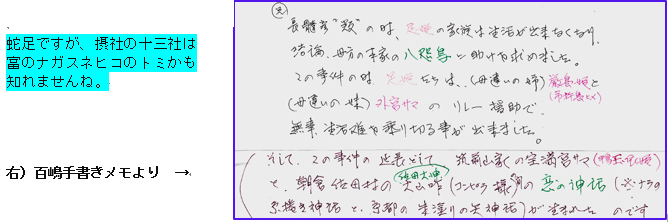 蛇足ですが、摂社の十三社は
富のナガスネヒコのトミかも
知れませんね。
右）百嶋手書きメモより　→
長髄彦"敗"の時、の家族は生活が出来なくなり、
結論、母方の本家の八咫烏に助けを求めました。
この事件の時、たちは、(母違いの姉)厳島姫と
(市杵島ヒメ)
(母違いの妹)外宮サマのリレー援助で、
無事、生活難を乗り切る事が出来ました。
そして、この事件の延長として、筑前山家の宝満宮サマ
と、朝倉佐田村の大山咋(コンピラ様)の恋の神話
佐田大神
糸巻き神話と、京都の朱塗りの矢神話)が生まれたのです